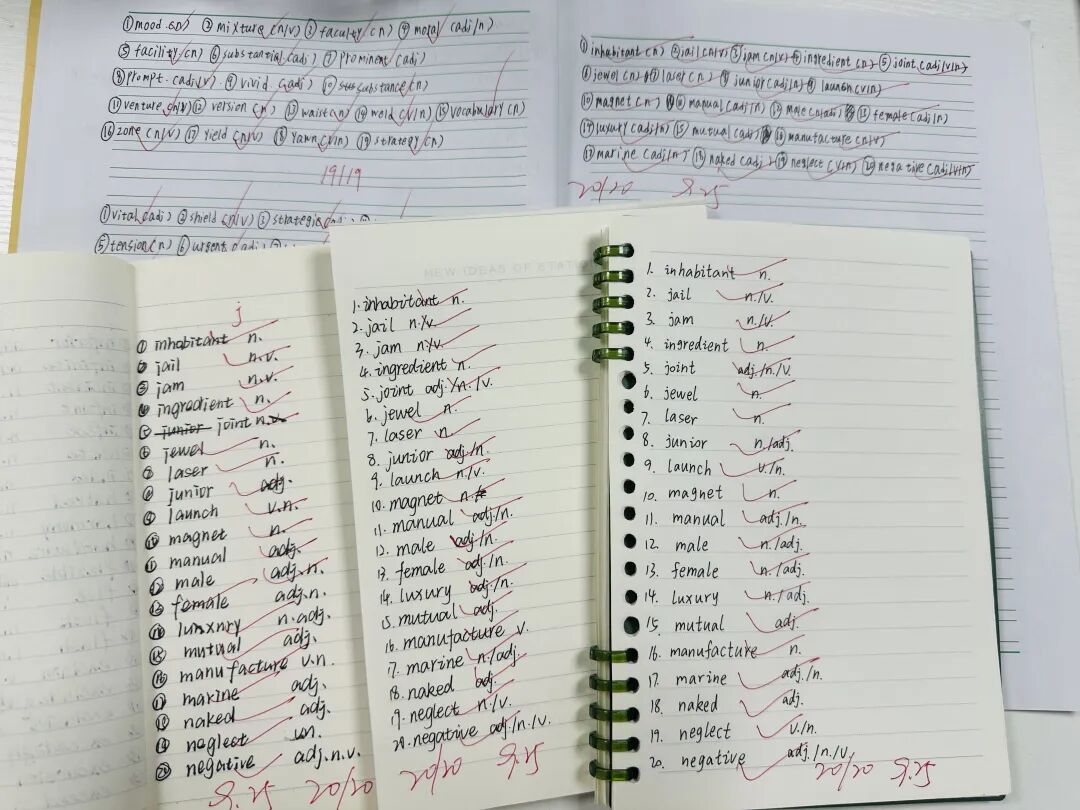 ①mood (n) ②mixture (n/v) ③faculty (n) ④moral (adj/n)
⑤facility (n) ⑥substantial (adj) ⑦prominent (adj)
⑧prompt (adj/v) ⑨vivid (adj) ⑩substance (n)
⑪venture (n/v) ⑫version (n) ⑬waist (n) ⑭weld (v/n) ⑮vocabulary (n)
⑯zone (n/v) ⑰yield (n/v) ⑱yawn (n/v) ⑲strategy (n)
19/19
①vital (adj) ②shield (n/v) ③strategic
⑤tension (n) ⑥urgent (adj)
①inhabitant (n) ②jail (n/v) ③jam (n/v) ④ingredient (n) ⑤joint (adj/v/n)
⑥jewel (n) ⑦laser (n) ⑧junior (adj/n) ⑨launch (v/n)
⑩magnet (n) ⑪manual (adj/n) ⑫male (n/adj) ⑬female (adj/n)
⑭luxury (adj/n) ⑮mutual (adj) ⑯manufacture (n/v)
⑰marine (adj/n) ⑱naked (adj) ⑲neglect (v/n) ⑳negative (adj/v/n)
20/20 5.25
j
① inhabitant n.
② jail n.v.
③ jam n.v.
④ ingredient n.
⑤ joint n.
⑥ jewel n.
⑦ laser n.
⑧ junior adj.
⑨ launch v.n.
⑩ magnet n.
⑪ manual adj.
⑫ male adj.n.
⑬ female adj.n.
⑭ luxnry n.adj.
⑮ mutual adj.
⑯ manufacture v.n.
⑰ marine adj.
⑱ naked adj.
⑲ neglect vn.
⑳ negative adj.n.v.
5.25 20/20
NEW IDEAS OF STATIO
1. inhabitant n.
2. jail n./v.
3. jam n./v.
4. ingredient n.
5. joint adj./n./v.
6. jewel n.
7. laser n.
8. junior adj./n.
9. launch n./v.
10. magnet n.
11. manual adj./n.
12. male adj./n.
13. female adj./n.
14. luxury adj./n.
15. mutual adj.
16. manufacture v.
17. marine n./adj.
18. naked adj.
19. neglect n./v.
20. negative adj./n./v.
20/20 5.25
1. inhabitant n.
2. jail n./v.
3. jam n./v.
4. ingredient n.
5. joint adj./n./v.
6. jewel n.
7. laser n.
8. junior n./adj.
9. launch v./n.
10. magnet n.
11. manual adj./n.
12. male n./adj.
13. female n./adj.
14. luxury n./adj.
15. mutual adj.
16. manufacture n.
17. marine adj./n.
18. naked adj.
19. neglect v./n.
20. negative adj./n./v.
20/20 5.25